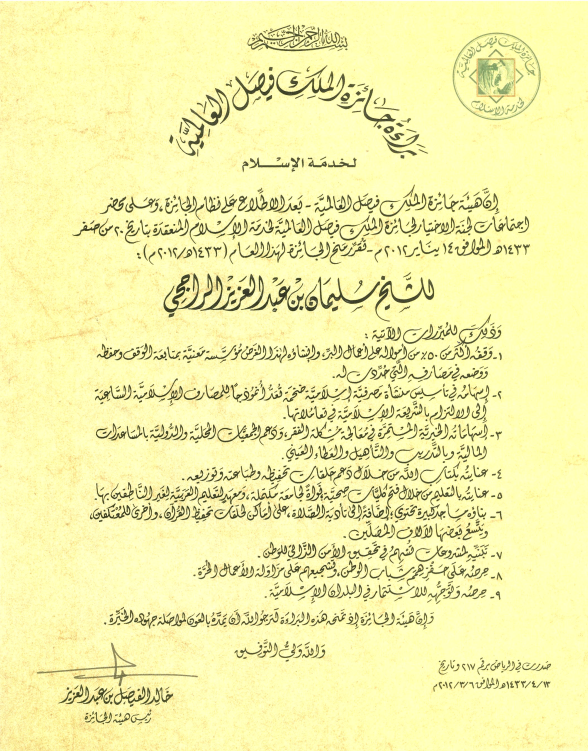 بسم الله الرحمن الرحيم
جائزة الملك فيصل العالمية
لخدمة الإسلام
براءة جائزة الملك فيصل العالمية
لخدمة الإسلام
إن هيئة جائزة الملك فيصل العالمية - بعد الاطلاع على نظام الجائزة، وعلى محضر
اجتماعات لجنة الاختيار لجائزة الملك فيصل العالمية لخدمة الإسلام المنعقدة بتاريخ ٢٠ من صفر
١٤٣٣هـ الموافق ١٤ يناير ٢٠١٢م - تقرر منح الجائزة لهذا العام (١٤٣٣هـ/٢٠١٢م):
للشيخ سليمان بن عبد العزيز الراجحي
وذلك للمبررات الآتية:
١- وقفه أكثر من ٥٠٪ من أمواله على أعمال البر، وإنشاؤه لهذا الغرض مؤسسة معنية بمتابعة الوقف وحفظه
ووضعه في مصارفه التي حددت له.
٢- إسهامه في تأسيس منشأة مصرفية إسلامية ضخمة تعد أنموذجاً للمصارف الإسلامية الساعية
إلى الالتزام بالشريعة الإسلامية في تعاملاتها.
٣- إسهاماته الخيرية المستمرة في معالجة مشكلة الفقر ودعم الجمعيات المحلية والدولية بالمساعدات
المالية وبالتدريب والتأهيل والعطاء العيني.
٤- عنايته بكتاب الله من خلال دعم حلقات تحفيظه وطباعته وتوزيعه.
٥- عنايته بالتعليم من خلال فتح كليات صحية نواة لجامعة مكتملة، ومعهد لتعليم العربية لغير الناطقين بها.
٦- بناؤه مساجد كبيرة تحتوي، بالإضافة إلى تأدية الصلاة، على أماكن لحلقات تحفيظ القرآن، وأخرى للمعتكفين،
ويتسع بعضها لآلاف المصلين.
٧- تبنيه لمشروعات تسهم في تحقيق الأمن الغذائي للوطن.
٨- حرصه على حفز همم شباب الوطن، وتشجيعهم على مزاولة الأعمال الحرة.
٩- حرصه وتوجهه للاستثمار في البلدان الإسلامية.
وإن هيئة الجائزة إذ تمنحه هذه البراءة لترجو الله أن يمده بالعون لمواصلة جهوده الخيرة.
والله ولي التوفيق
صدرت في الرياض برقم ٢١٧ وتاريخ
١٤٣٣/٤/١٣هـ الموافق ٢٠١٢/٣/٦م
خالد الفيصل بن عبد العزيز
رئيس هيئة الجائزة